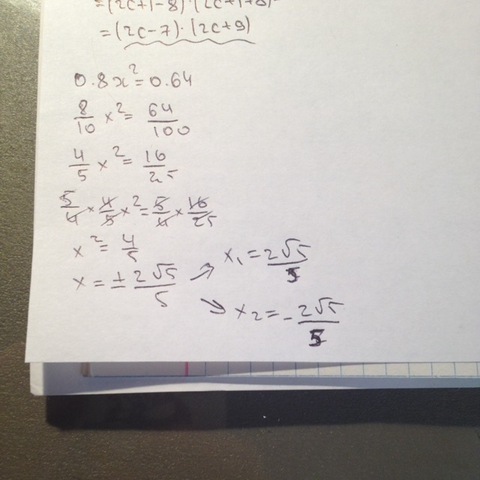 =(2c+1-8)·(2c+1+8)=
=(2c-7)·(2c+9)
0.8x²=0.64
8/10 x²= 64/100
4/5 x²= 16/25
5/4 × 4/5 x²= 5/4 × 16/25
x²= 4/5
x=± 2√5/5
x₁= 2√5/5
x₂=- 2√5/5